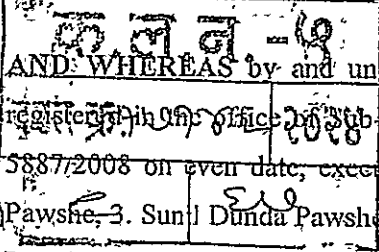 क ल न - ५
AND WHEREAS by and un
registered in the office of Sub-
5887/2008 on even date, exec
Pawshe, 3. Sunil Dunda Pawshe